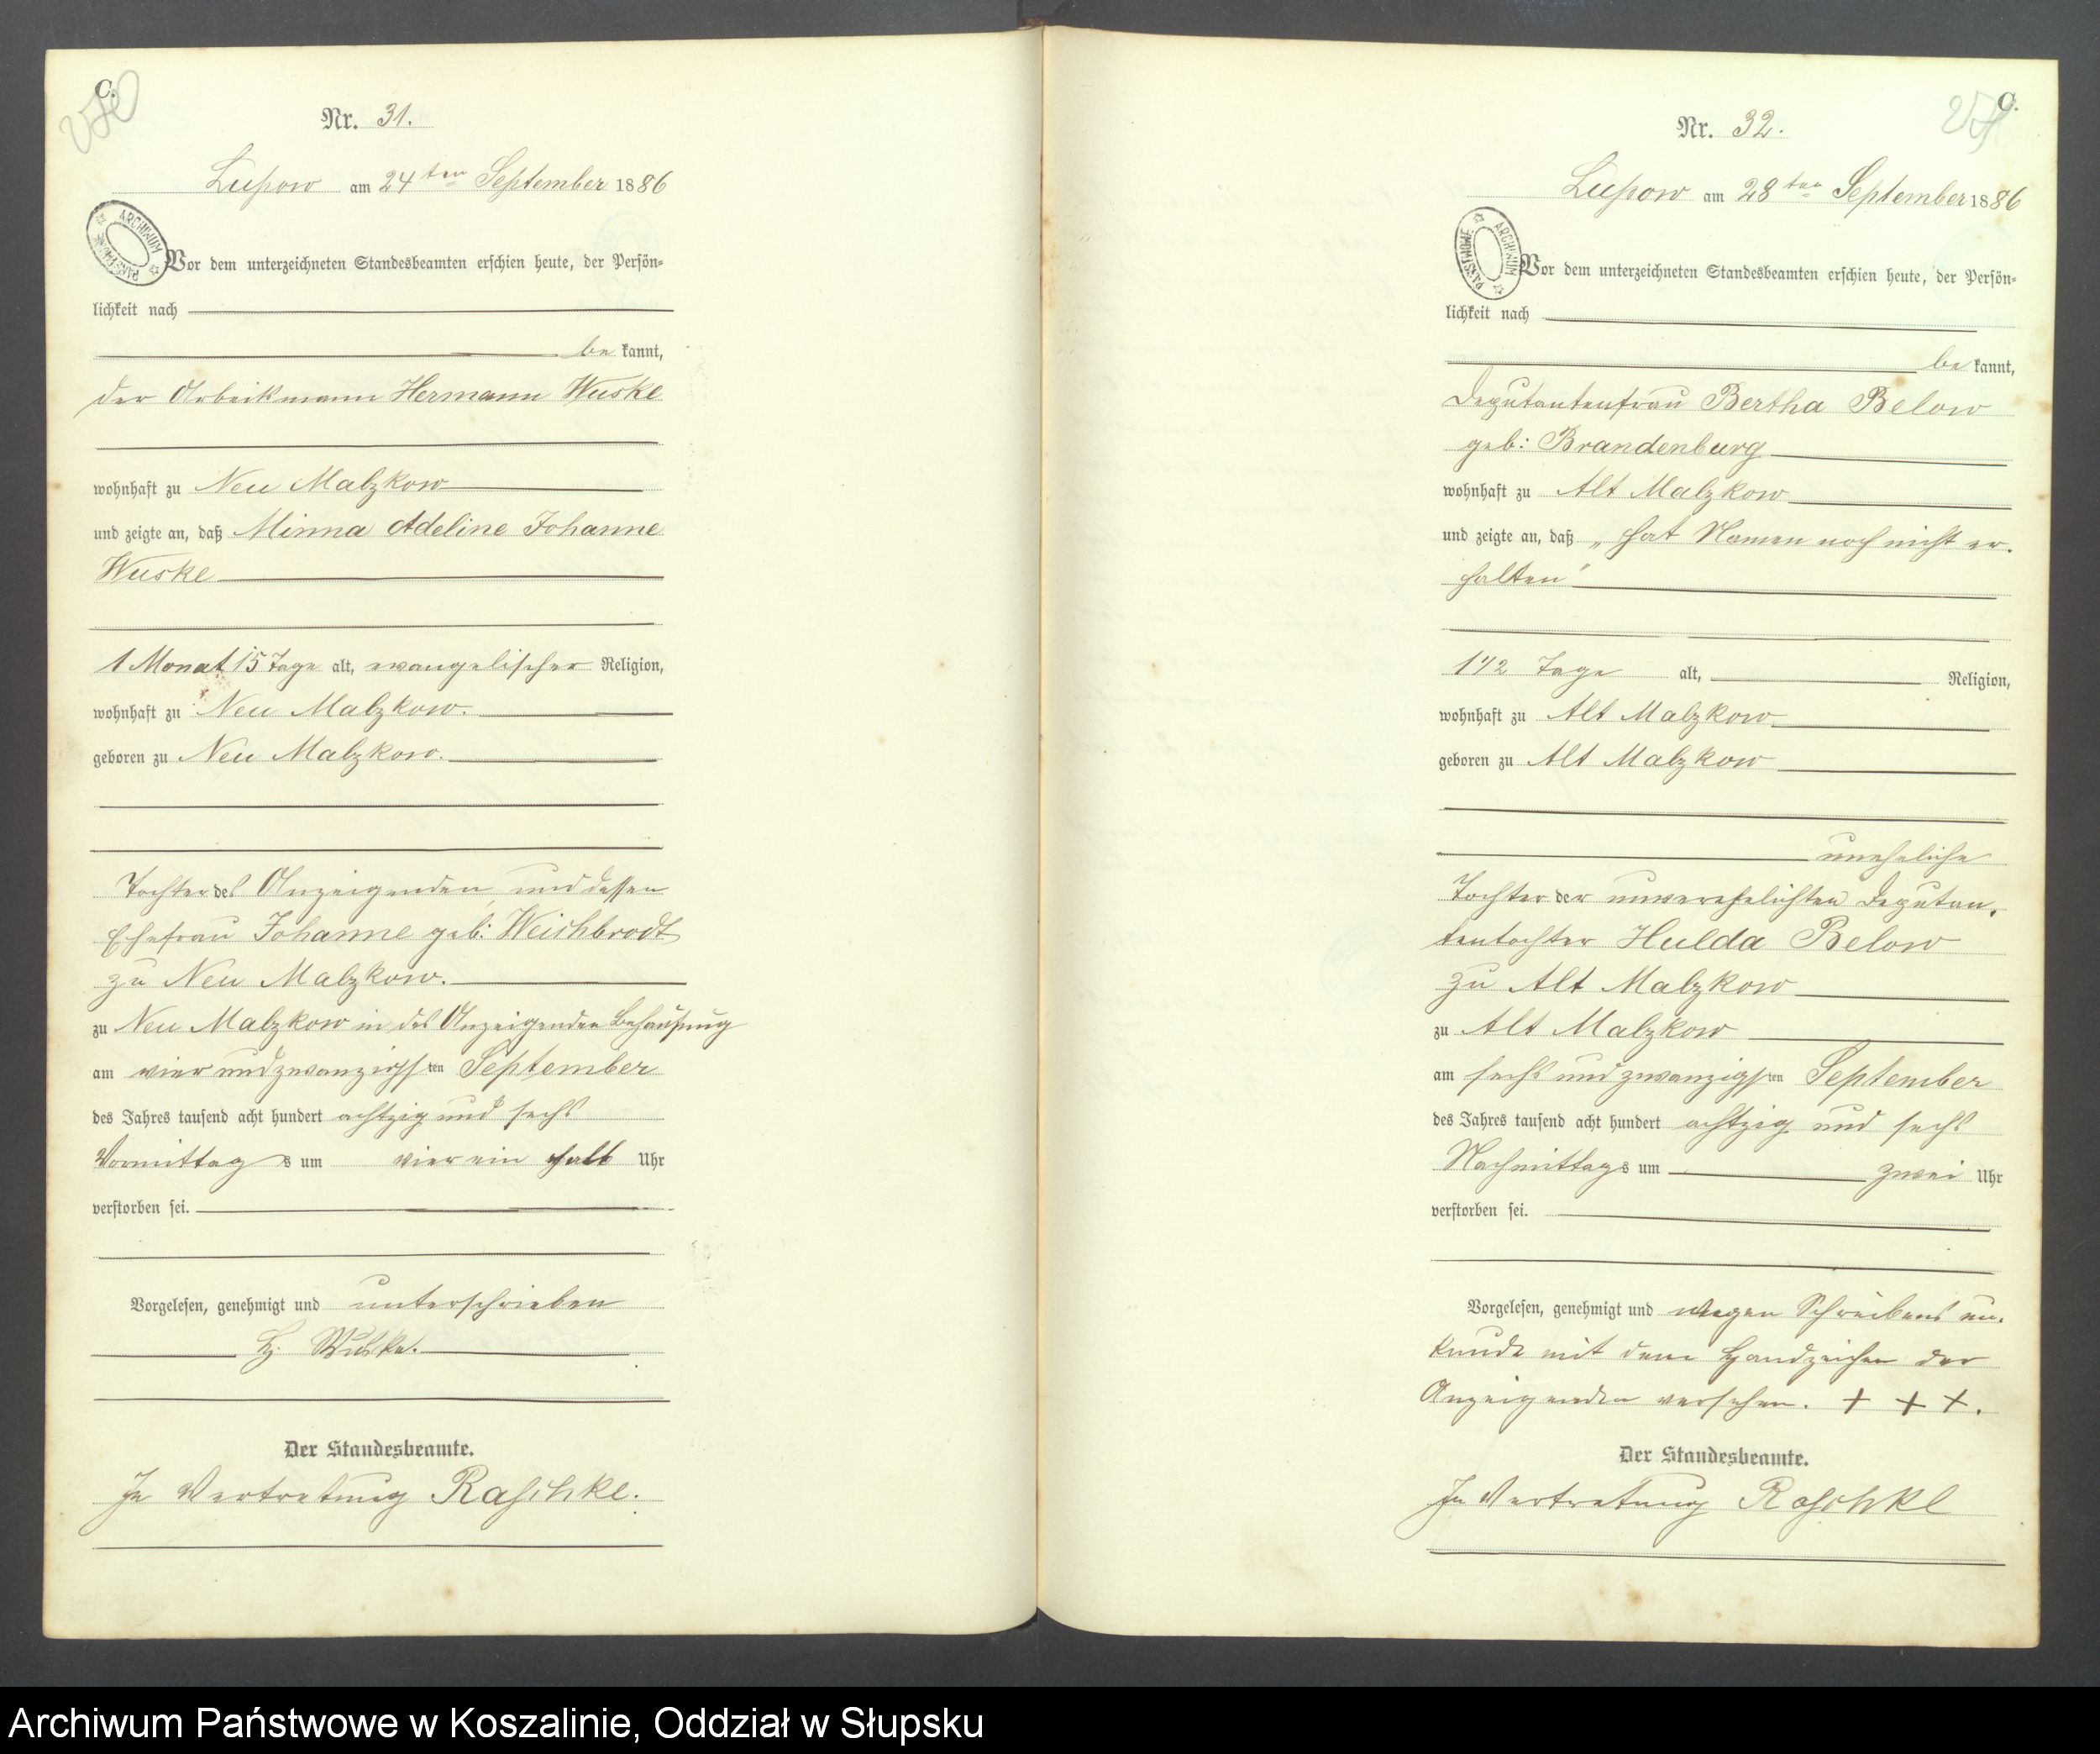 C.
Nr. 31.
Lupow am 24ten September 1886
ARCHIWUM PAŃSTWOWE
Vor dem unterzeichneten Standesbeamten erschien heute, der Persön-
lichkeit nach
be kannt,
der Arbeitsmann Hermann Wuske
wohnhaft zu Neu Malzkow
und zeigte an, daß Minna Adeline Johanne
Wuske
1 Monat 15 Tage alt, evangelischer Religion,
wohnhaft zu Neu Malzkow.
geboren zu Neu Malzkow.
Tochter des Anzeigenden, und dessen
Ehefrau Johanne geb: Weichbrodt
zu Neu Malzkow.
zu Neu Malzkow in des Anzeigenden Behausung
am vier und zwanzigsten September
des Jahres tausend acht hundert achtzig und sechs
Vormittags um vier ein halb Uhr
verstorben sei.
Vorgelesen, genehmigt und unterschrieben
H. Wuske.
Der Standesbeamte.
In Vertretung Raschke.
C.
Nr. 32.
Lupow am 28ten September 1886
ARCHIWUM PAŃSTWOWE
Vor dem unterzeichneten Standesbeamten erschien heute, der Persön-
lichkeit nach
be kannt,
Deputantenfrau Bertha Below
geb: Brandenburg
wohnhaft zu Alt Malzkow
und zeigte an, daß „hat Namen noch nicht er-
halten"
1 1/2 Tage alt, Religion,
wohnhaft zu Alt Malzkow
geboren zu Alt Malzkow
uneheliche
Tochter der unverehelichten Deputan-
tentochter Hulda Below
zu Alt Malzkow
zu Alt Malzkow
am sechs und zwanzigsten September
des Jahres tausend acht hundert achtzig und sechs
Nachmittags um zwei Uhr
verstorben sei.
Vorgelesen, genehmigt und wegen Schreibens un-
kunde mit dem Handzeichen der
Anzeigenden versehen. + + +.
Der Standesbeamte.
In Vertretung Raschke
Archiwum Państwowe w Koszalinie, Oddział w Słupsku